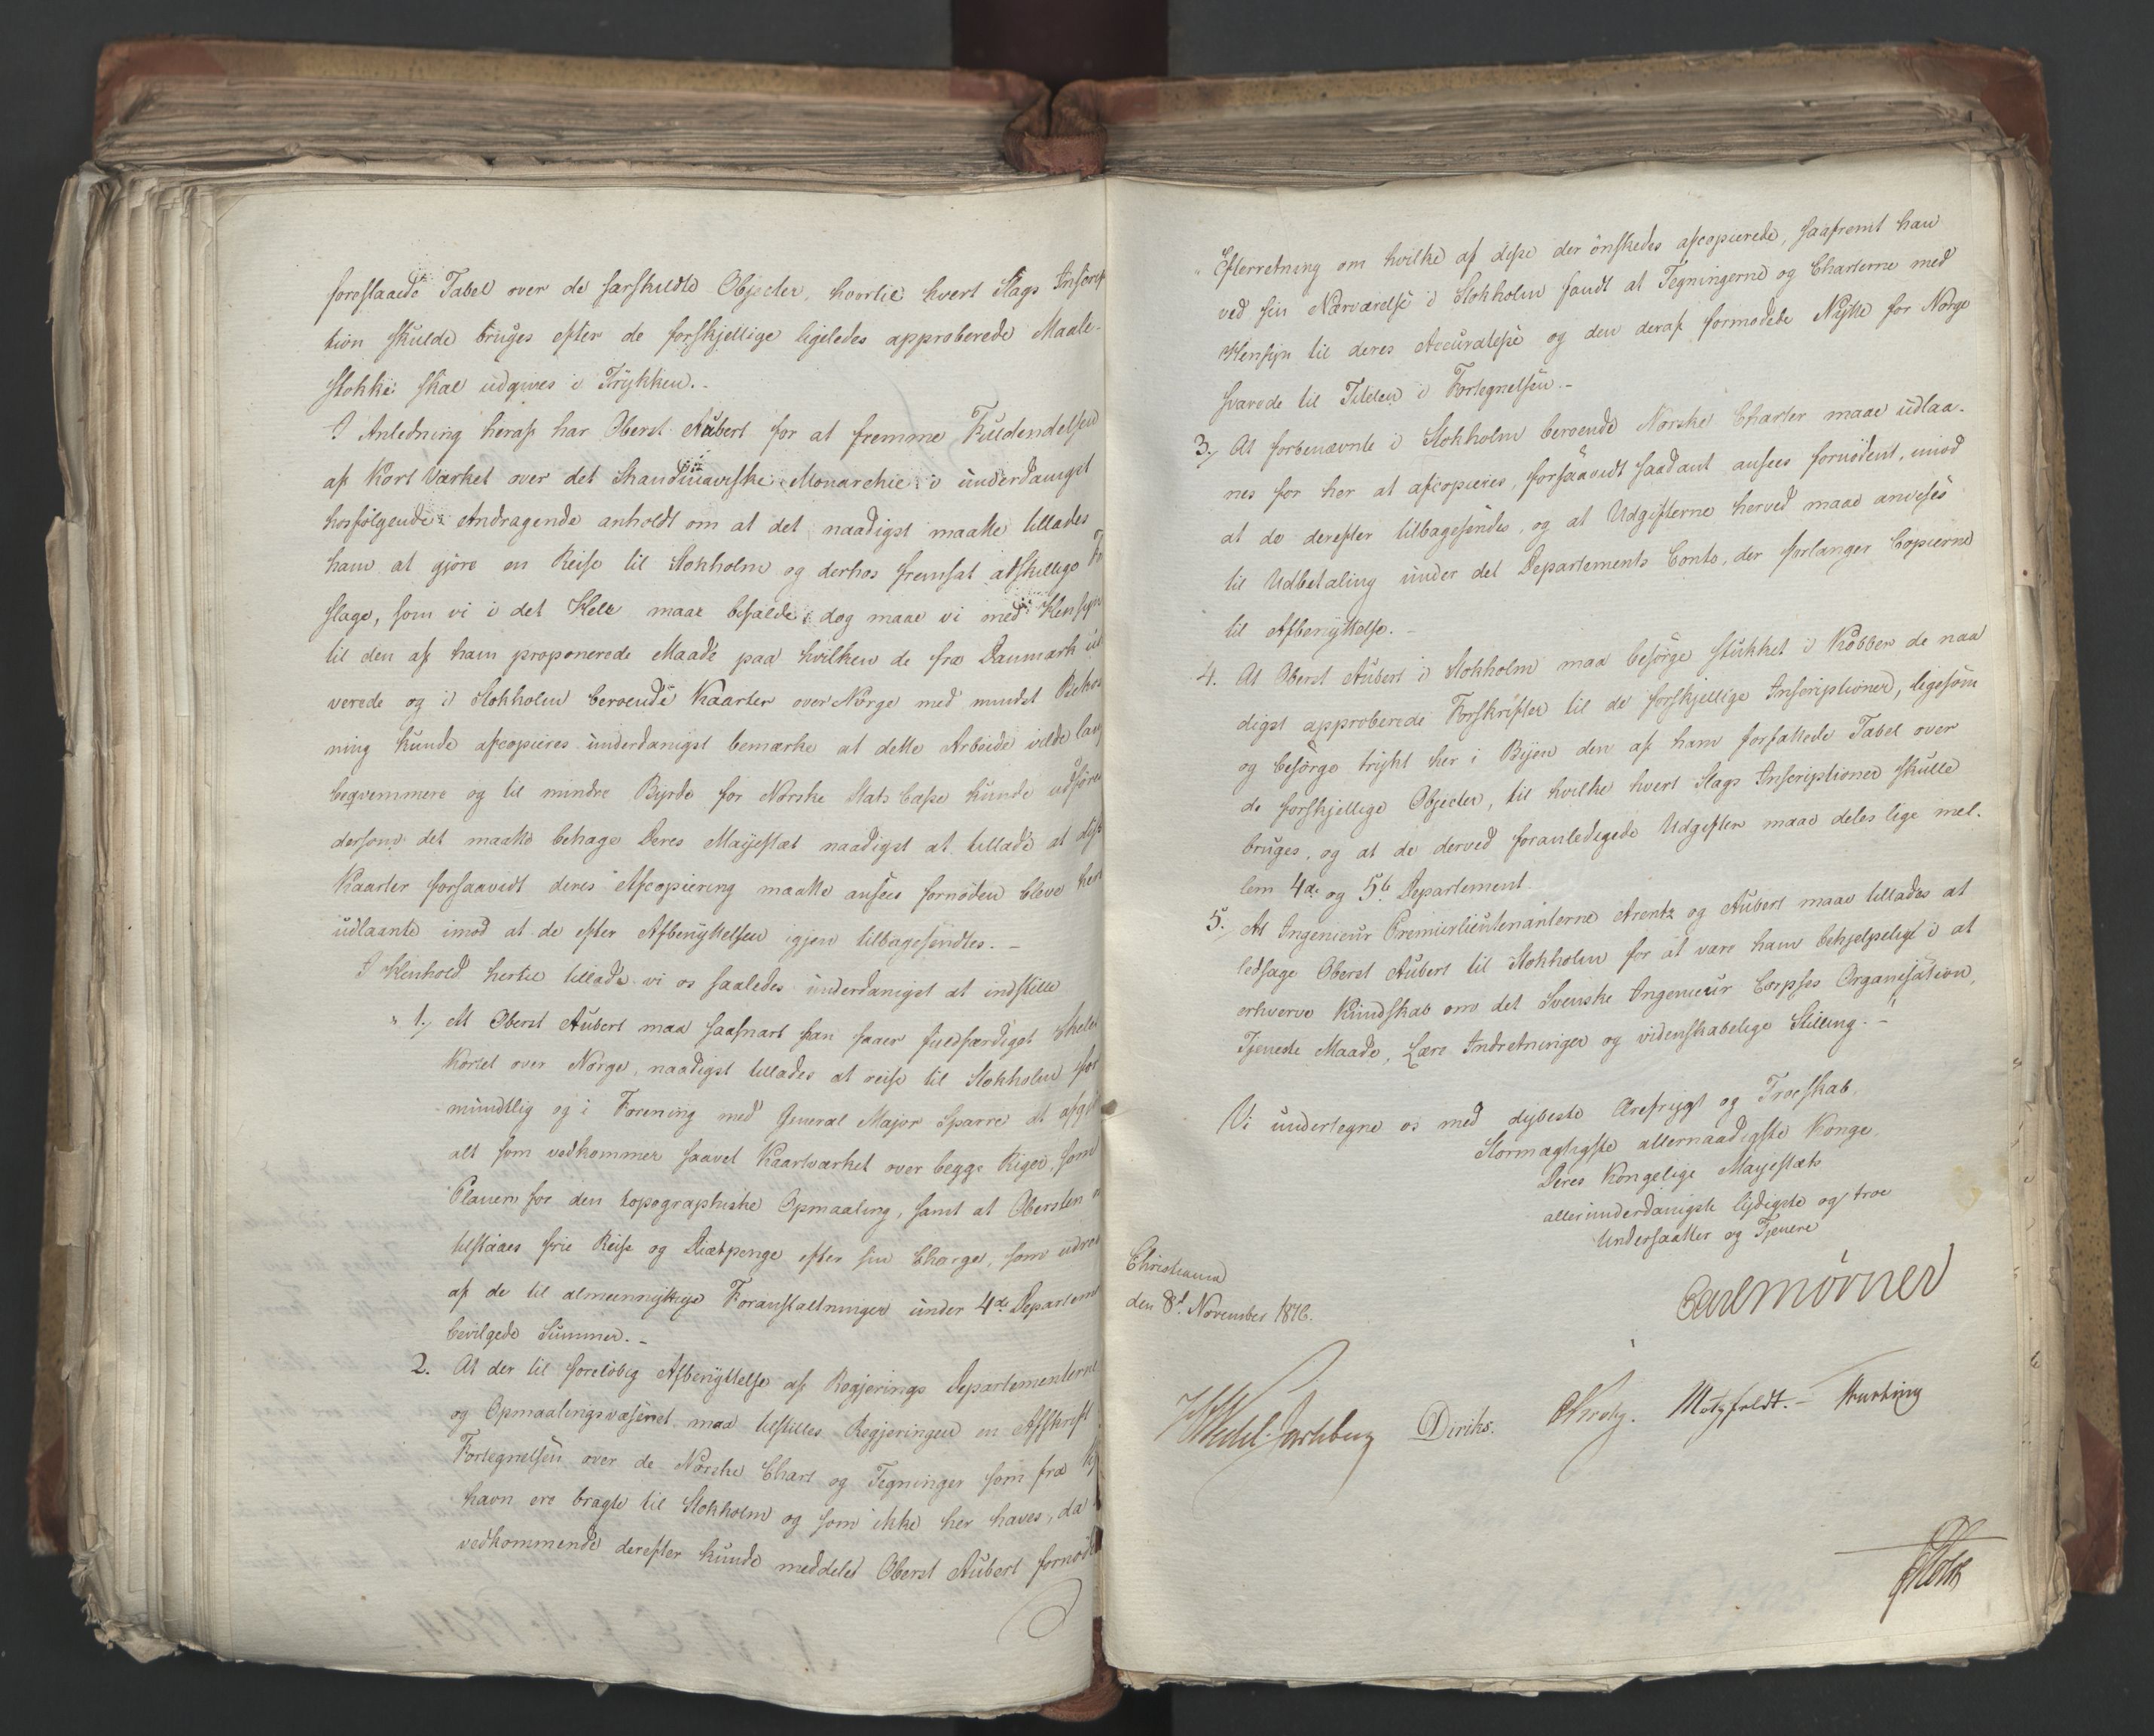 foreslaaede Tabel over de særskildte Objecter, hvortil hvert Slags Inscrip
tion skulde bruges efter de forskjellige ligeledes approberede Maale-
stokke skal udgives i Trykken.-
I Anledning heraf har Oberst Aubert for at fremme Fuldendelsen
af Kort Værket over det Skandinaviske Monarchie i underdanigst
hosfölgende Andragende anholdt om at det naadigst maatte tillades
ham at gjöre en Reise til Stokholm og derhos fremsat adskillige
slage, som vi i det Hele maae bifalde, dog maae vi med Hensyn
til den af ham proponerede Maade paa hvilken de fra Danmark
verede og i Stokholm beroende Kaarter over Norge med mindst
ning kunde afcopieres underdanigst bemærke at dette Arbeide vilde
beqvemmere og til mindre Byrde for Norske Stats Casse kunde udföres
dersom det maatte behage Deres Majestæt naadigst at tillade at
Kaarter forsaavidt deres Afcopiering maatte ansees fornöden bleve
udlaante imod at de efter Afbenyttelsen igjen tilbagesendtes. -
I Henhold hertil tillade vi os saaledes underdanigst at indstille
" 1., At Oberst Aubert maa saasnart han faaer fuldfærdiget
Kortet over Norge, naadigst tillades at reise til Stokholm for
mundtlig og i Forening med General Major Sparre at
alt som vedkommer saavel Kaartværket over begge Riger, som
Planen for den topographiske Opmaaling, samt at Obersten
tilstaaes frie Reise og Diætpenge efter sin Charge, som
af de til almeennyttige Foranstaltninger under 4de Departem
bevilgede Summer. -
2. At der til forelöbig Afbenyttelse af Regjerings Departementerne
og Opmaalingsvæsenet maa tilstilles Regjeringen en Afskrift
Fortegnelsen over de Norske Chart og Tegninger som fra
havn ere bragte til Stokholm og som ikke her haves, da
vedkommende derefter kunde meddele Oberst Aubert fornöd
" Efterretning om hvilke af disse der önskedes afcopierede, saafremt han
ved sin Nærværelse i Stokholm fandt at Tegningerne og Charterne med
Hensyn til deres Accuratesse og den deraf formodede Nytte for Norge
svarede til Titelen i Fortegnelsen.-
3., At forbenævnte i Stokholm beroende Norske Charter maae udlaa-
nes for her at afcopieres, forsaavidt saadant ansees fornödent, imod
at de derefter tilbagesendes, og at Udgifterne herved maae anvises
til Udbetaling under det Departements Conto, der forlanger Copierne
til Afbenyttelse. -
4. At Oberst Aubert i Stokholm maa besörge stukket i Kobber de naa
digst approberede Forskrifter til de forskjellige Inscriptioner, ligesom
og besörge trykt her i Byen den af ham forfattede Tabel over
de forskjellige Objecter, til hvilke hvert Slags Inscriptioner skulle
bruges, og at de derved foranledigede Udgifter maae deles lige mel-
lem 4de og 5te Departement
5., At Ingenieur Premierlieutenanterne Arentz og Aubert maae tillades at
ledsage Oberst Aubert til Stokholm for at være ham behjelpeligt i at
erhverve Kundskab om det Svenske Ingenieur Corpses Organisation,
Tjeneste Maade, Lære Indretninger og videnskabelige Stilling. -
Vi undertegne os med dybeste Ærefrygt og Troeskab.
Stormægtigste allernaadigste Konge
Deres Kongelige Majestæts
allerunderdanigste lydigste og troe
Undersaatter og Tjenere
Christiania
den 8d November 1816.
Carl Mörner
HWedel-Jarlsberg Diriks. CKrohg. Motzfeldt.-